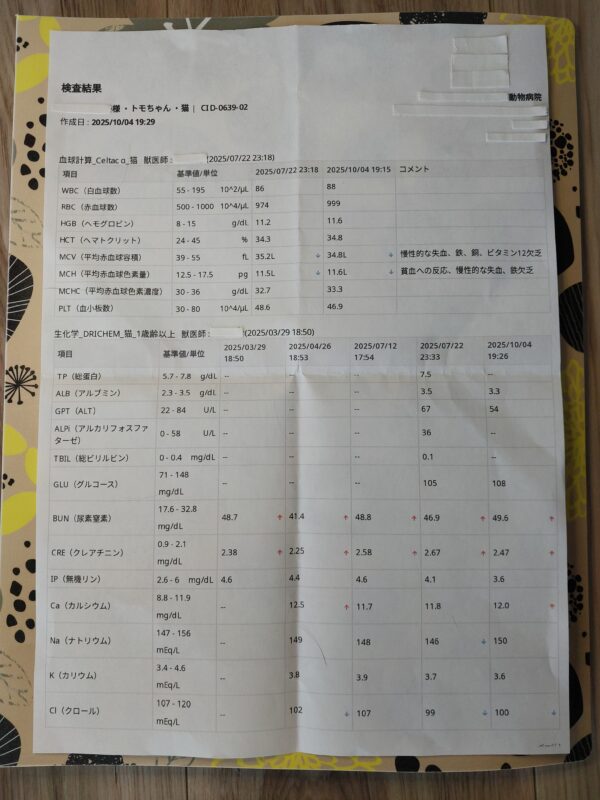 検査結果
動物病院
様・トモちゃん・猫 | CID-0639-02
作成日 : 2025/10/04 19:29
血球計算_Celtac α_猫 獣医師 : (2025/07/22 23:18)
項目 基準値/単位 2025/07/22 23:18 2025/10/04 19:15 コメント
WBC（白血球数） 55 - 195 10^2/μL 86 88
RBC（赤血球数） 500 - 1000 10^4/μL 974 999
HGB（ヘモグロビン） 8 - 15 g/dL 11.2 11.6
HCT（ヘマトクリット） 24 - 45 % 34.3 34.8
MCV（平均赤血球容積） 39 - 55 fL 35.2L ↓ 34.8L ↓ 慢性的な失血、鉄、銅、ビタミン12欠乏
MCH（平均赤血球色素量） 12.5 - 17.5 pg 11.5L ↓ 11.6L ↓ 貧血への反応、慢性的な失血、鉄欠乏
MCHC（平均赤血球色素濃度） 30 - 36 g/dL 32.7 33.3
PLT（血小板数） 30 - 80 10^4/μL 48.6 46.9
生化学_DRICHEM_猫_1歳齢以上 獣医師 : (2025/03/29 18:50)
項目 基準値/単位 2025/03/29 18:50 2025/04/26 18:53 2025/07/12 17:54 2025/07/22 23:33 2025/10/04 19:26
TP（総蛋白） 5.7 - 7.8 g/dL -- -- -- 7.5 --
ALB（アルブミン） 2.3 - 3.5 g/dL -- -- -- 3.5 3.3
GPT（ALT） 22 - 84 U/L -- -- -- 67 54
ALPi（アルカリフォスファターゼ） 0 - 58 U/L -- -- -- 36 --
TBIL（総ビリルビン） 0 - 0.4 mg/dL -- -- -- 0.1 --
GLU（グルコース） 71 - 148 mg/dL -- -- -- 105 108
BUN（尿素窒素） 17.6 - 32.8 mg/dL 48.7 ↑ 41.4 ↑ 48.8 ↑ 46.9 ↑ 49.6 ↑
CRE（クレアチニン） 0.9 - 2.1 mg/dL 2.38 ↑ 2.25 ↑ 2.58 ↑ 2.67 ↑ 2.47 ↑
IP（無機リン） 2.6 - 6 mg/dL 4.6 4.4 4.6 4.1 3.6
Ca（カルシウム） 8.8 - 11.9 mg/dL -- 12.5 ↑ 11.7 11.8 12.0 ↑
Na（ナトリウム） 147 - 156 mEq/L -- 149 148 146 ↓ 150
K（カリウム） 3.4 - 4.6 mEq/L -- 3.8 3.9 3.7 3.6
Cl（クロール） 107 - 120 mEq/L -- 102 ↓ 107 99 ↓ 100 ↓